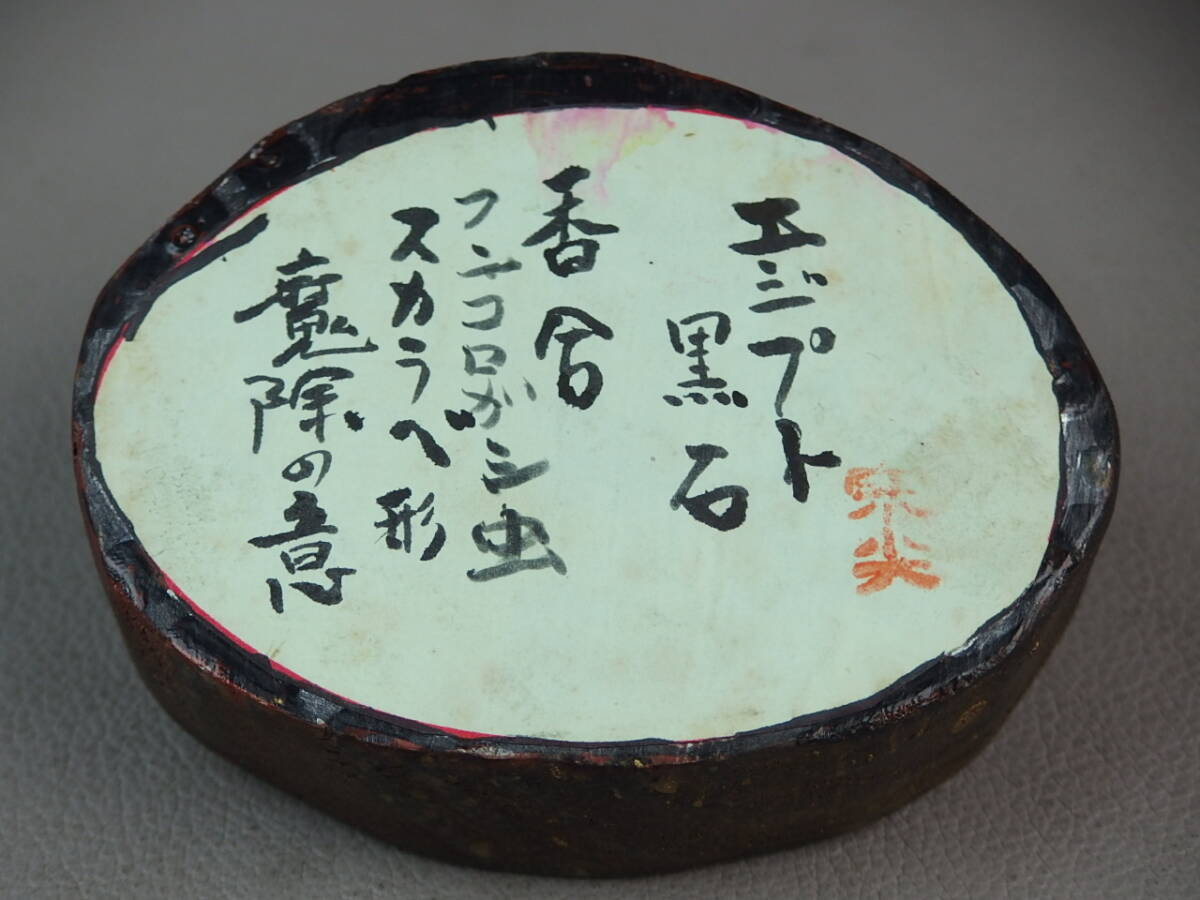 エジプト
黒石
香合
フンコロガシ虫
スカラベ形
魔除の意